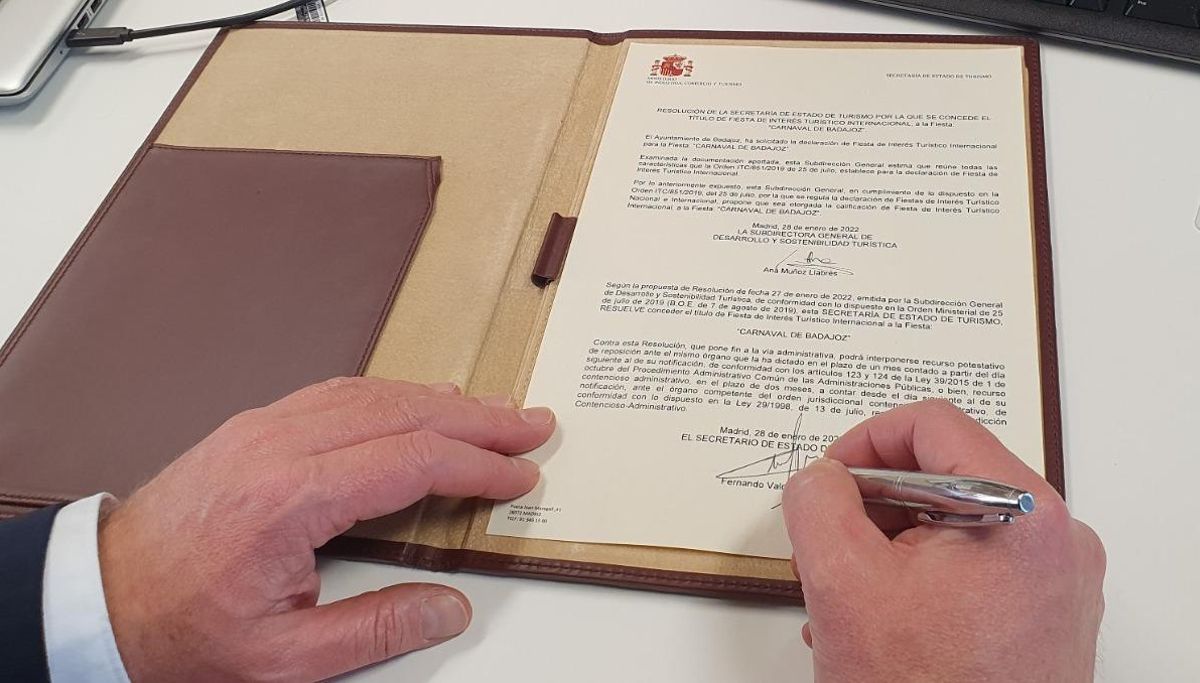 MINISTERIO
DE INDUSTRIA, COMERCIO Y TURISMO
SECRETARÍA DE ESTADO DE TURISMO
RESOLUCIÓN DE LA SECRETARÍA DE ESTADO DE TURISMO POR LA QUE SE CONCEDE EL
TÍTULO DE FIESTA DE INTERÉS TURÍSTICO INTERNACIONAL, a la Fiesta:
"CARNAVAL DE BADAJOZ"
El Ayuntamiento de Badajoz, ha solicitado la declaración de Fiesta de Interés Turístico Internacional
para la Fiesta: "CARNAVAL DE BADAJOZ"
Examinada la documentación aportada, esta Subdirección General estima que reúne todas las
características que la Orden ITC/851/2019 de 25 de julio, establece para la declaración de Fiesta de
Interés Turístico Internacional.
Por lo anteriormente expuesto, esta Subdirección General, en cumplimiento de lo dispuesto en la
Orden ITC/851/2019, del 25 de julio, por la que se regula la declaración de Fiestas de Interés Turístico
Nacional e Internacional, propone que sea otorgada la calificación de Fiesta de Interés Turístico
Internacional, a la Fiesta: "CARNAVAL DE BADAJOZ"
Madrid, 28 de enero de 2022
LA SUBDIRECTORA GENERAL DE
DESARROLLO Y SOSTENIBILIDAD TURÍSTICA
Ana
Ana Muñoz Llabrés
Según la propuesta de Resolución de fecha 27 de enero de 2022, emitida por la Subdirección General
de Desarrollo y Sostenibilidad Turística, de conformidad con lo dispuesto en la Orden Ministerial de 25
de julio de 2019 (B.O.E. de 7 de agosto de 2019), esta SECRETARÍA DE ESTADO DE TURISMO,
RESUELVE conceder el título de Fiesta de Interés Turístico Internacional a la Fiesta:
"CARNAVAL DE BADAJOZ"
Contra esta Resolución, que pone fin a la vía administrativa, podrá interponerse recurso potestativo
de reposición ante el mismo órgano que la ha dictado en el plazo de un mes contado a partir del día
siguiente al de su notificación, de conformidad con los artículos 123 y 124 de la Ley 39/2015 de 1 de
octubre del Procedimiento Administrativo Común de las Administraciones Públicas, o bien, recurso
contencioso administrativo, en el plazo de dos meses, a contar desde el día siguiente al de su
notificación, ante el órgano competente del orden jurisdiccional de
conformidad con lo dispuesto en la Ley 29/1998, de 13 de julio,
Contencioso-Administrativo.
Madrid, 28 de enero de
EL SECRETARIO DE ESTADO DE
Fernando
28071 MADRID